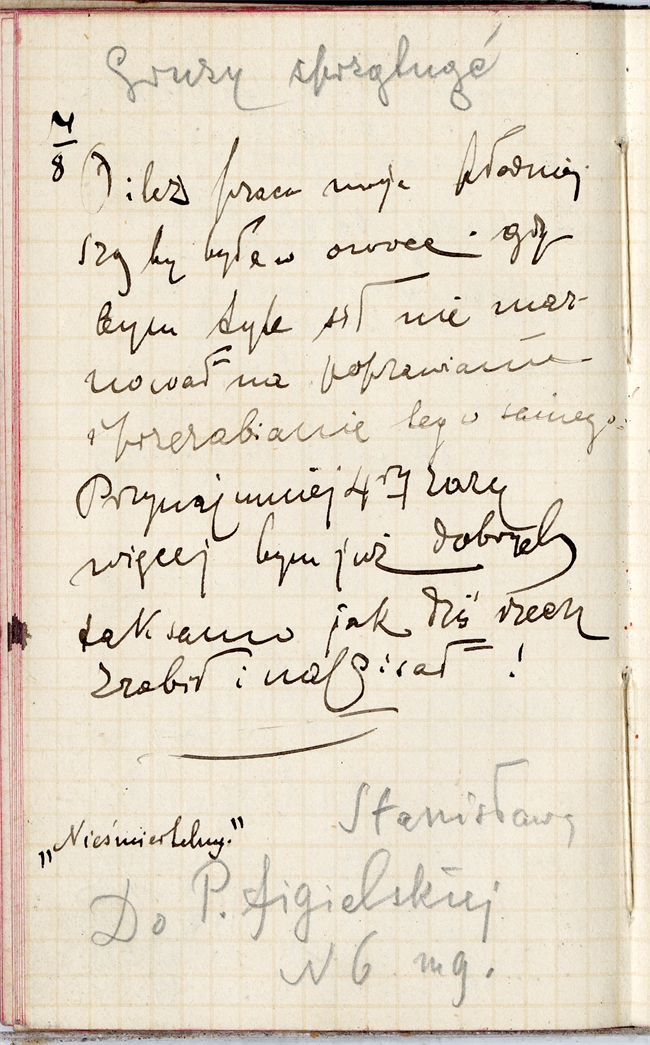 Gruzy sprzątnąć
7/8
O ileż praca moja płodniej
szą by była w owoce gdy
bym tyle sił nie mar-
nował na poprawianie
i przerabianie tego samego.
Przynajmniej 4 razy
więcej bym już dobrych
tak samo jak dziś rzeczy
zrobił i napisał!
„Nieśmiertelny."
Stanisławy
Do P. Figielskiej
N 6 mg.